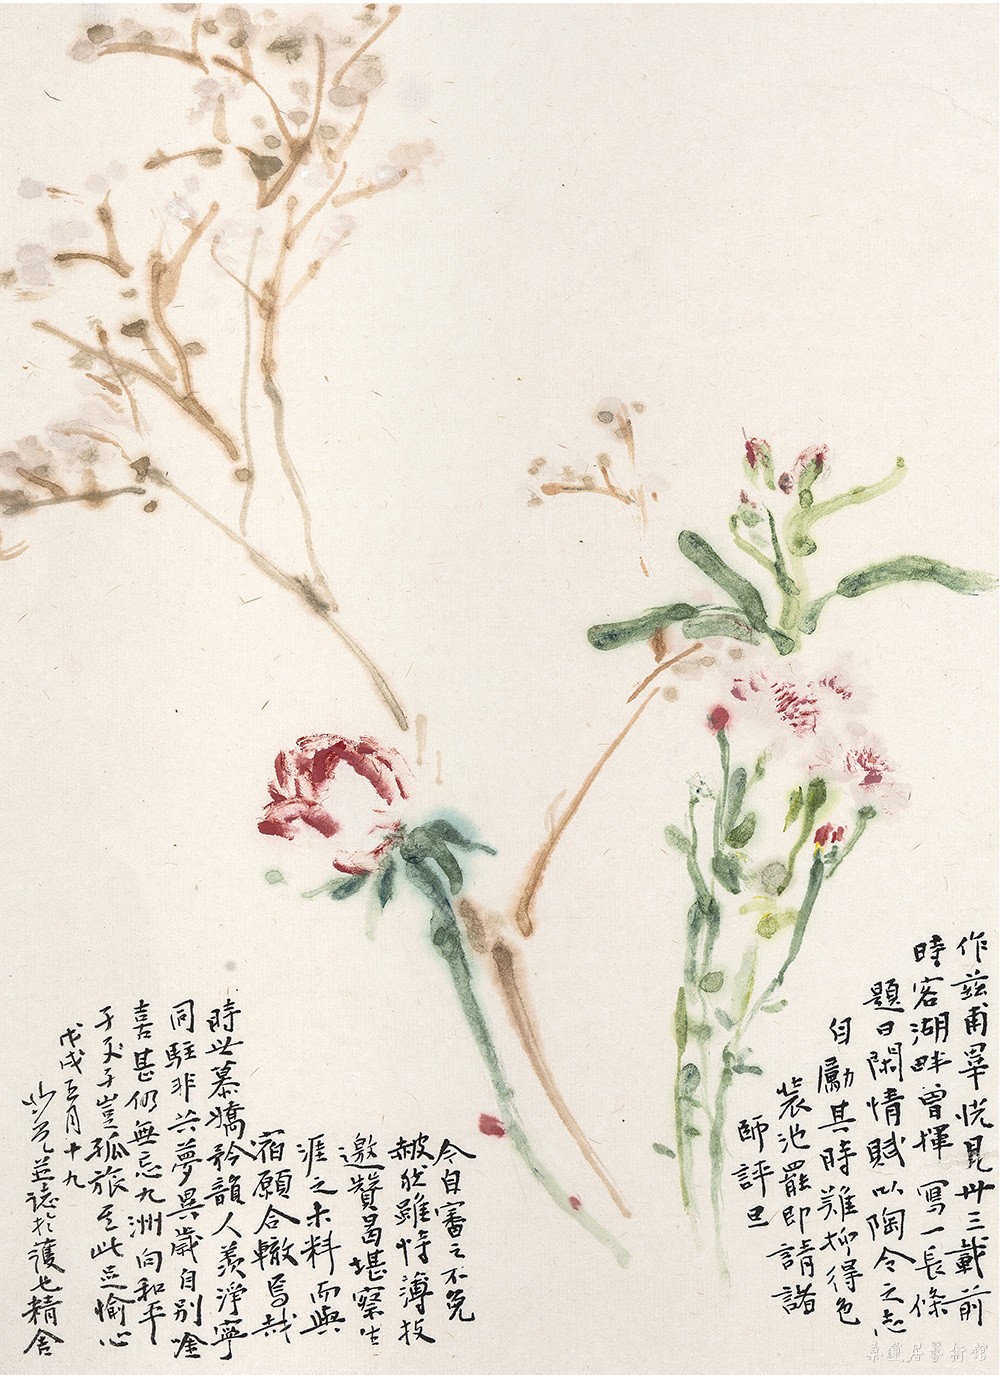 作茲甫畢恍見卅三載前
時客湖畔曾揮寫一長條
題曰閑情賦以陶令之志
自勵其時難抑得色
裝池罷即請諸
師評旦
今自審之不免
赧然雖恃薄技
邀贊曷堪察生
涯之未料而與
宿願合轍焉哉
時世慕驕矜韻人羨淨寧
同駐非共夢異歲自別唫
喜甚仍無忘九洲向和平
于子豈孤旅至此足愉心
戊戌五月十九
並誌於護生精舍
藝術館